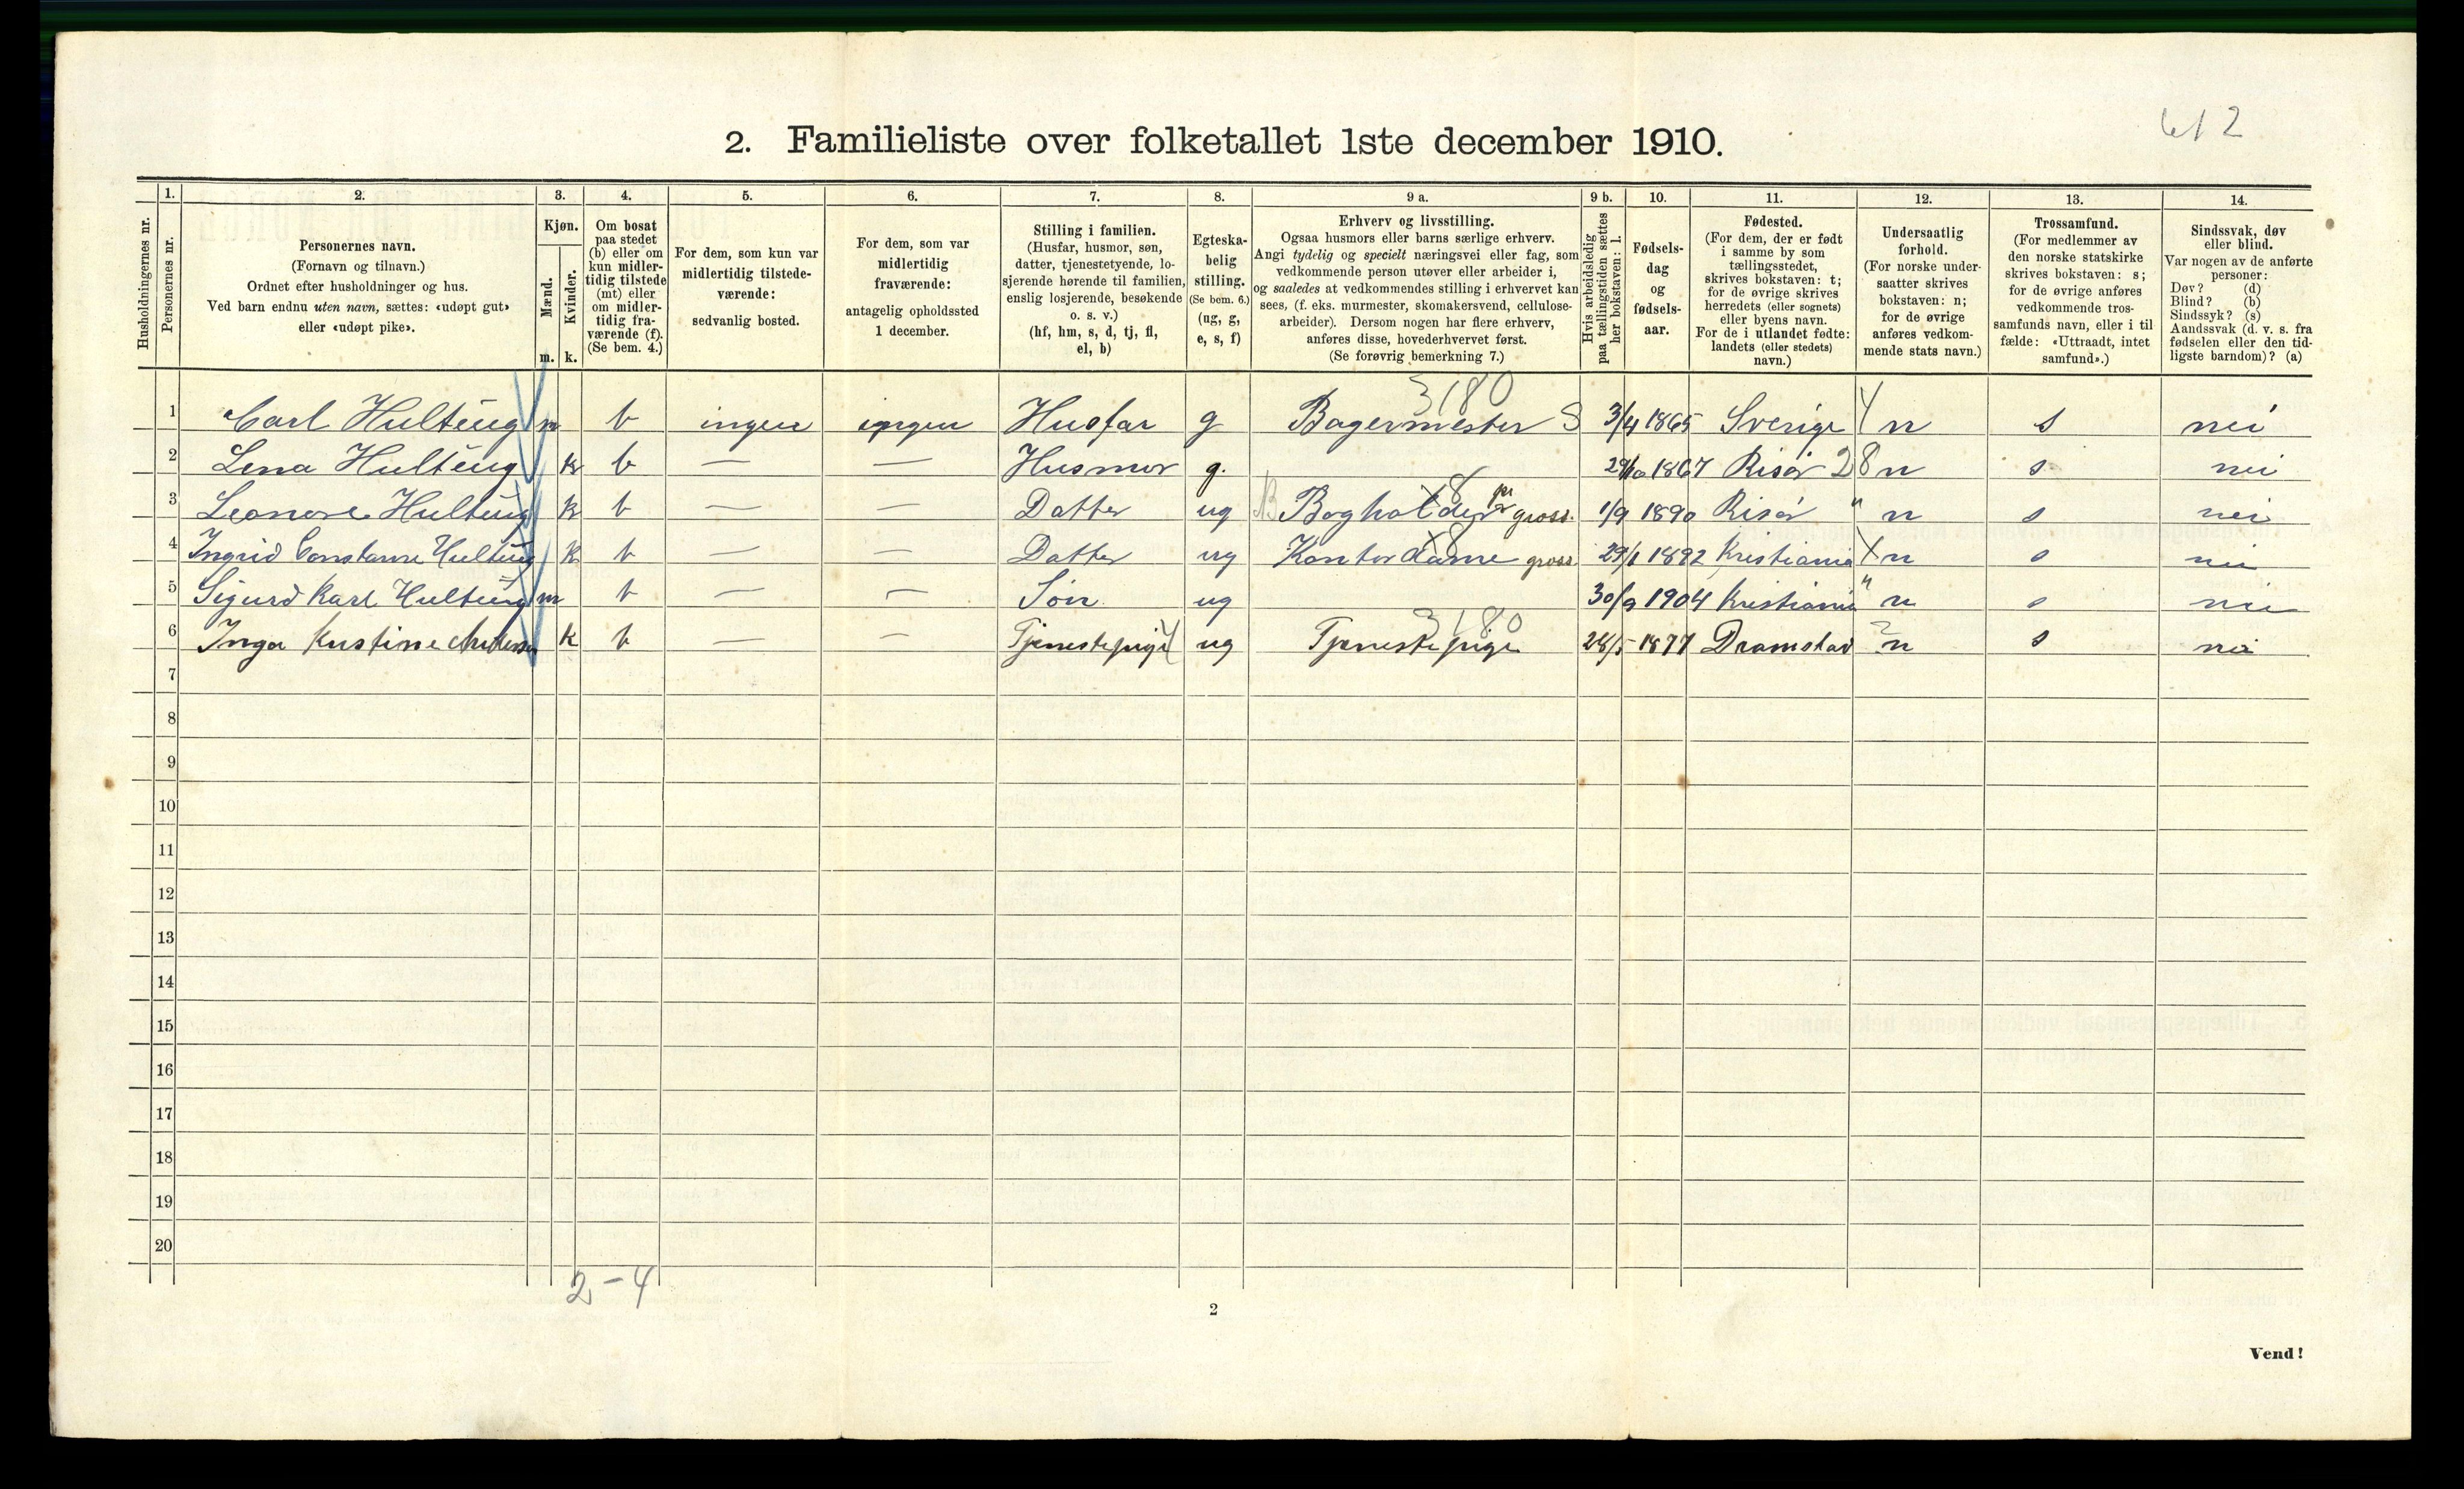 612
2. Familieliste over folketallet 1ste december 1910.
Husholdningernes nr.
1. Personernes nr.
2. Personernes navn. (Fornavn og tilnavn.) Ordnet efter husholdninger og hus. Ved barn endnu uten navn, sættes: «udøpt gut» eller «udøpt pike».
3. Kjøn. Mænd. m. Kvinder. k.
4. Om bosat paa stedet (b) eller om kun midlertidig tilstede (mt) eller om midlertidig fraværende (f). (Se bem. 4.)
5. For dem, som kun var midlertidig tilstedeværende: sedvanlig bosted.
6. For dem, som var midlertidig fraværende: antagelig opholdssted 1 december.
7. Stilling i familien. (Husfar, husmor, søn, datter, tjenestetyende, losjerende hørende til familien, enslig losjerende, besøkende o. s. v.) (hf, hm, s, d, tj, fl, el, b)
8. Egteskabelig stilling. (Se bem. 6.) (ug, g, e, s, f)
9 a. Erhverv og livsstilling. Ogsaa husmors eller barns særlige erhverv. Angi tydelig og specielt næringsvei eller fag, som vedkommende person utøver eller arbeider i, og saaledes at vedkommendes stilling i erhvervet kan sees, (f. eks. murmester, skomakersvend, cellulosearbeider). Dersom nogen har flere erhverv, anføres disse, hovederhvervet først. (Se forøvrig bemerkning 7.)
9 b. Hvis arbeidsledig paa tællingstiden sættes her bokstaven: l.
10. Fødselsdag og fødselsaar.
11. Fødested. (For dem, der er født i samme by som tællingsstedet, skrives bokstaven: t; for de øvrige skrives herredets (eller sognets) eller byens navn. For de i utlandet fødte: landets (eller stedets) navn.)
12. Undersaatlig forhold. (For norske undersaatter skrives bokstaven: n; for de øvrige anføres vedkommende stats navn.)
13. Trossamfund. (For medlemmer av den norske statskirke skrives bokstaven: s; for de øvrige anføres vedkommende trossamfunds navn, eller i tilfælde: «Uttraadt, intet samfund».)
14. Sindssvak, døv eller blind. Var nogen av de anførte personer: Døv? (d) Blind? (b) Sindssyk? (s) Aandssvak (d. v. s. fra fødselen eller den tidligste barndom)? (a)
3180
1 Carl Hulteng m b ingen ingen Husfar g Bagermester S 3/4 1865 Sverige 4 n s nei
2 Lena Hulteng k b — — Husmor g. 29/10 1867 Risør 28 n s nei
3 Leonore Hulteng k b — — Datter ug B Bogholder gross. 1/9 1890 Risør " n s nei
4 Ingrid Constanse Hulteng k b — — Datter ug Kontordame gross. 29/1 1892 Kristiania n s nei
5 Sigurd Karl Hulteng m b — — Søn ug 30/9 1904 Kristiania " n s nei
3180
6 Inga Kristine Andersen k b — — Tjenestepige ug Tjenestepige 28/5 1877 Dramstad ? n s nei
7
8
9
10
11
12
13
14
15
16
17
18
19
20
2-4
2
Vend!